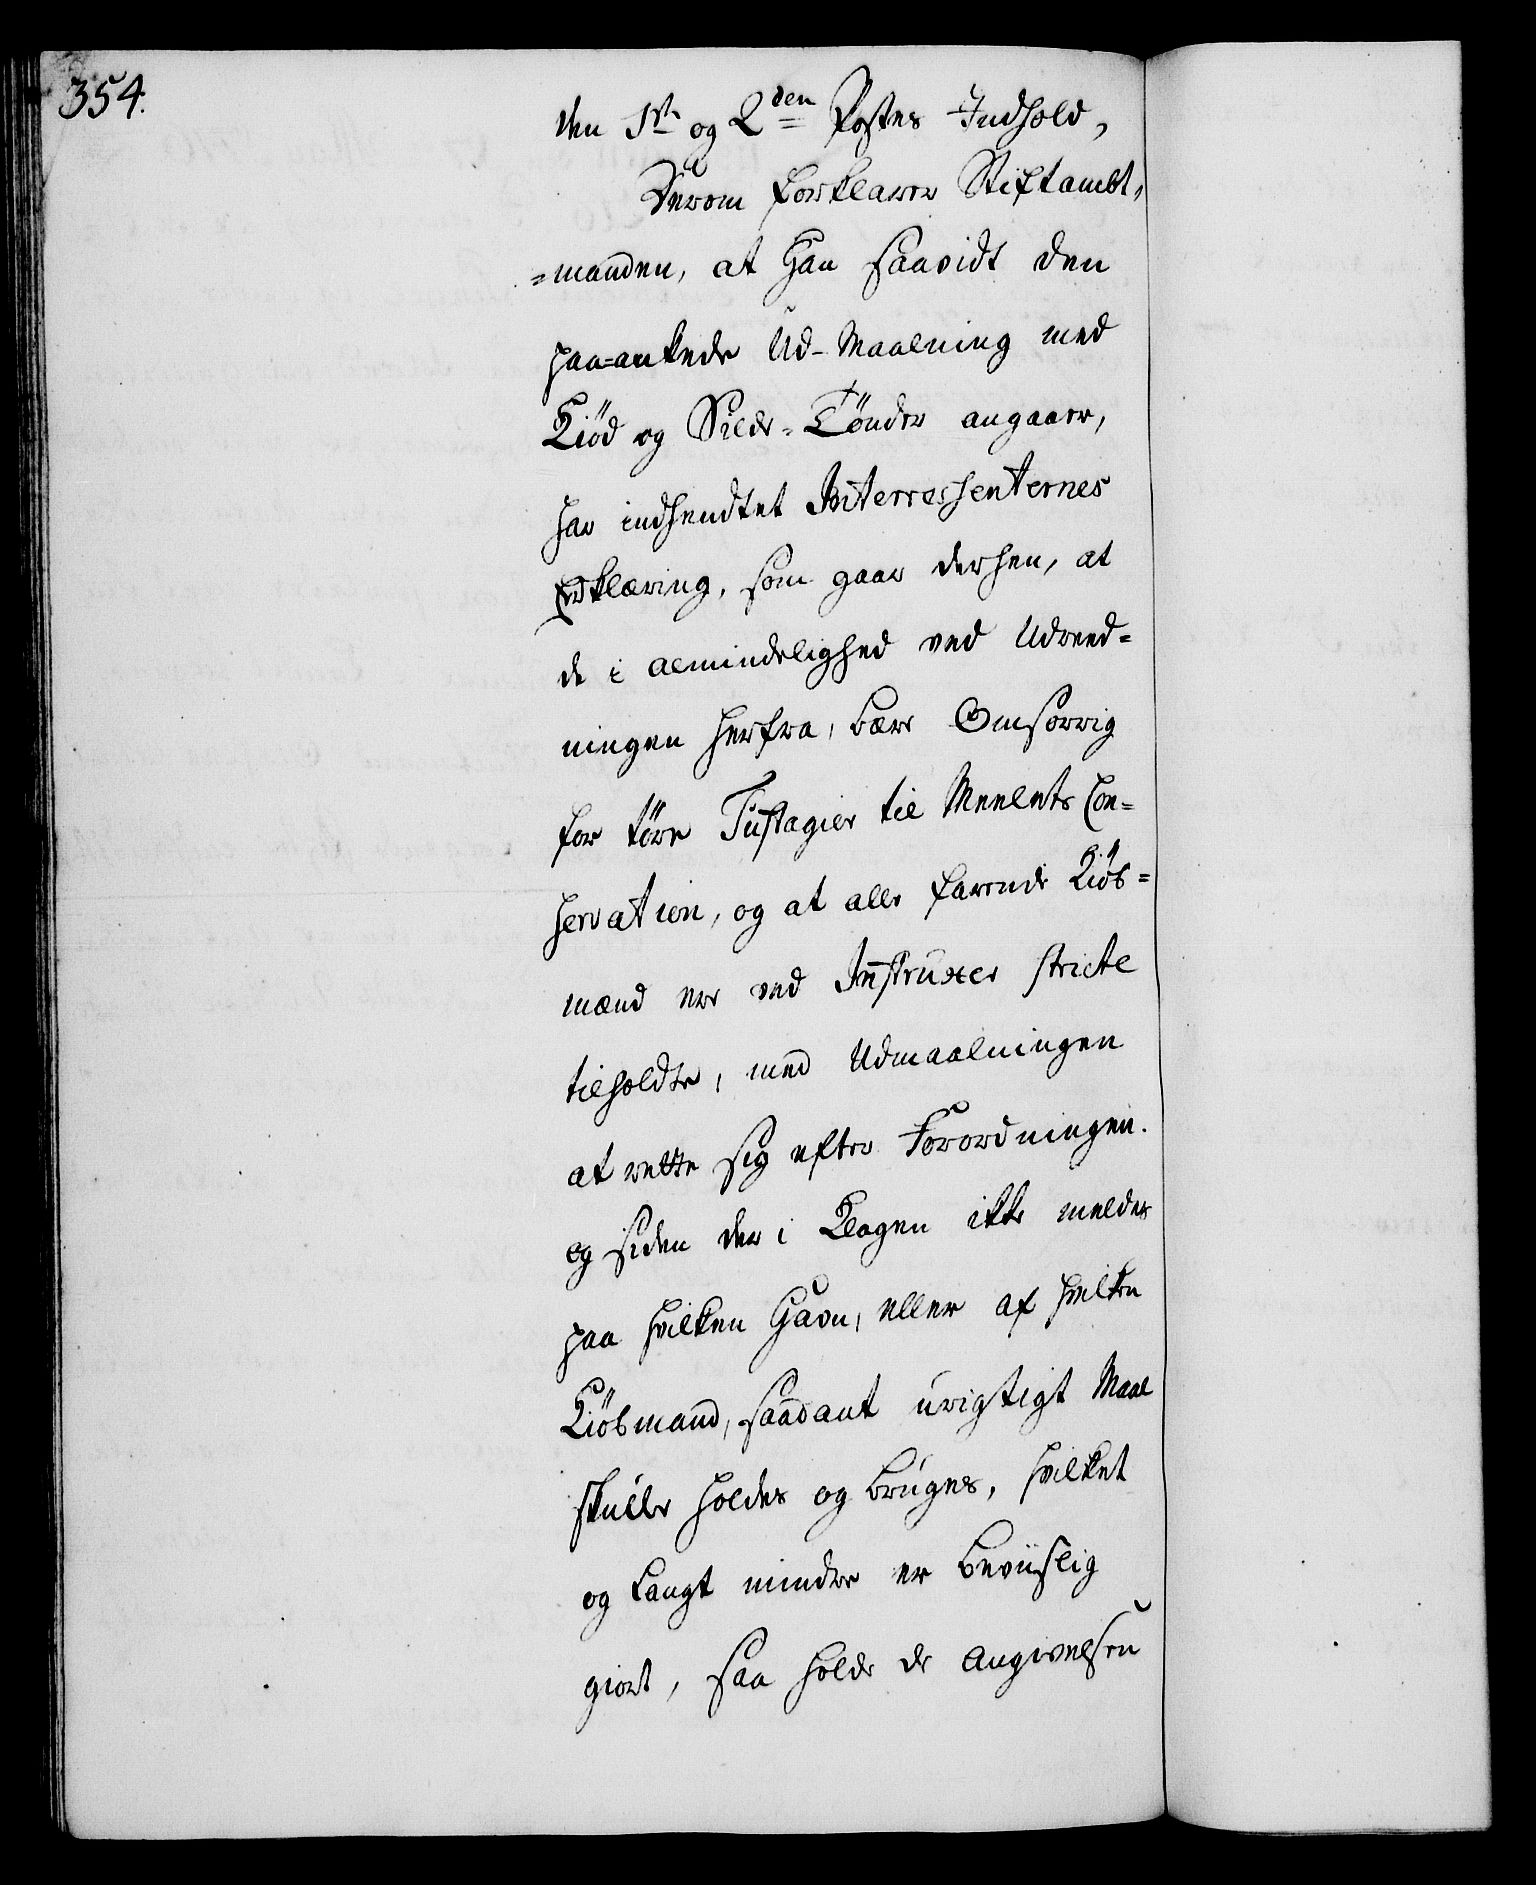 354.
den 1ste og 2den Postes Indhold,
Derom forklarer Stiftambt,
=manden, at han saavidt den
paa=ankede Ud-Maalning med
Kiöd og Silde-Tönder angaaer,
har indhendtet Interressenternes
Erklæring, som gaar derhen, at
de i Almindelighed ved Udreed=
ningen herfra, bære Omsorrig
for töre Fustagier til Meelets Con=
servation, og at alle farende Kiöb=
mænd ere ved Instruxer stricte
tilholdte, med Udmaalningen
at rette sig efter Forordningen.
og siden der i Klagen ikke meldes
paa hvilken Havn, eller af hvilken
Kiöbmand, saadant urigtigt Maal
skulle holdes og bruges, hvilket
og langt mindre er beviislig
giort, saa holde de Angivelsen